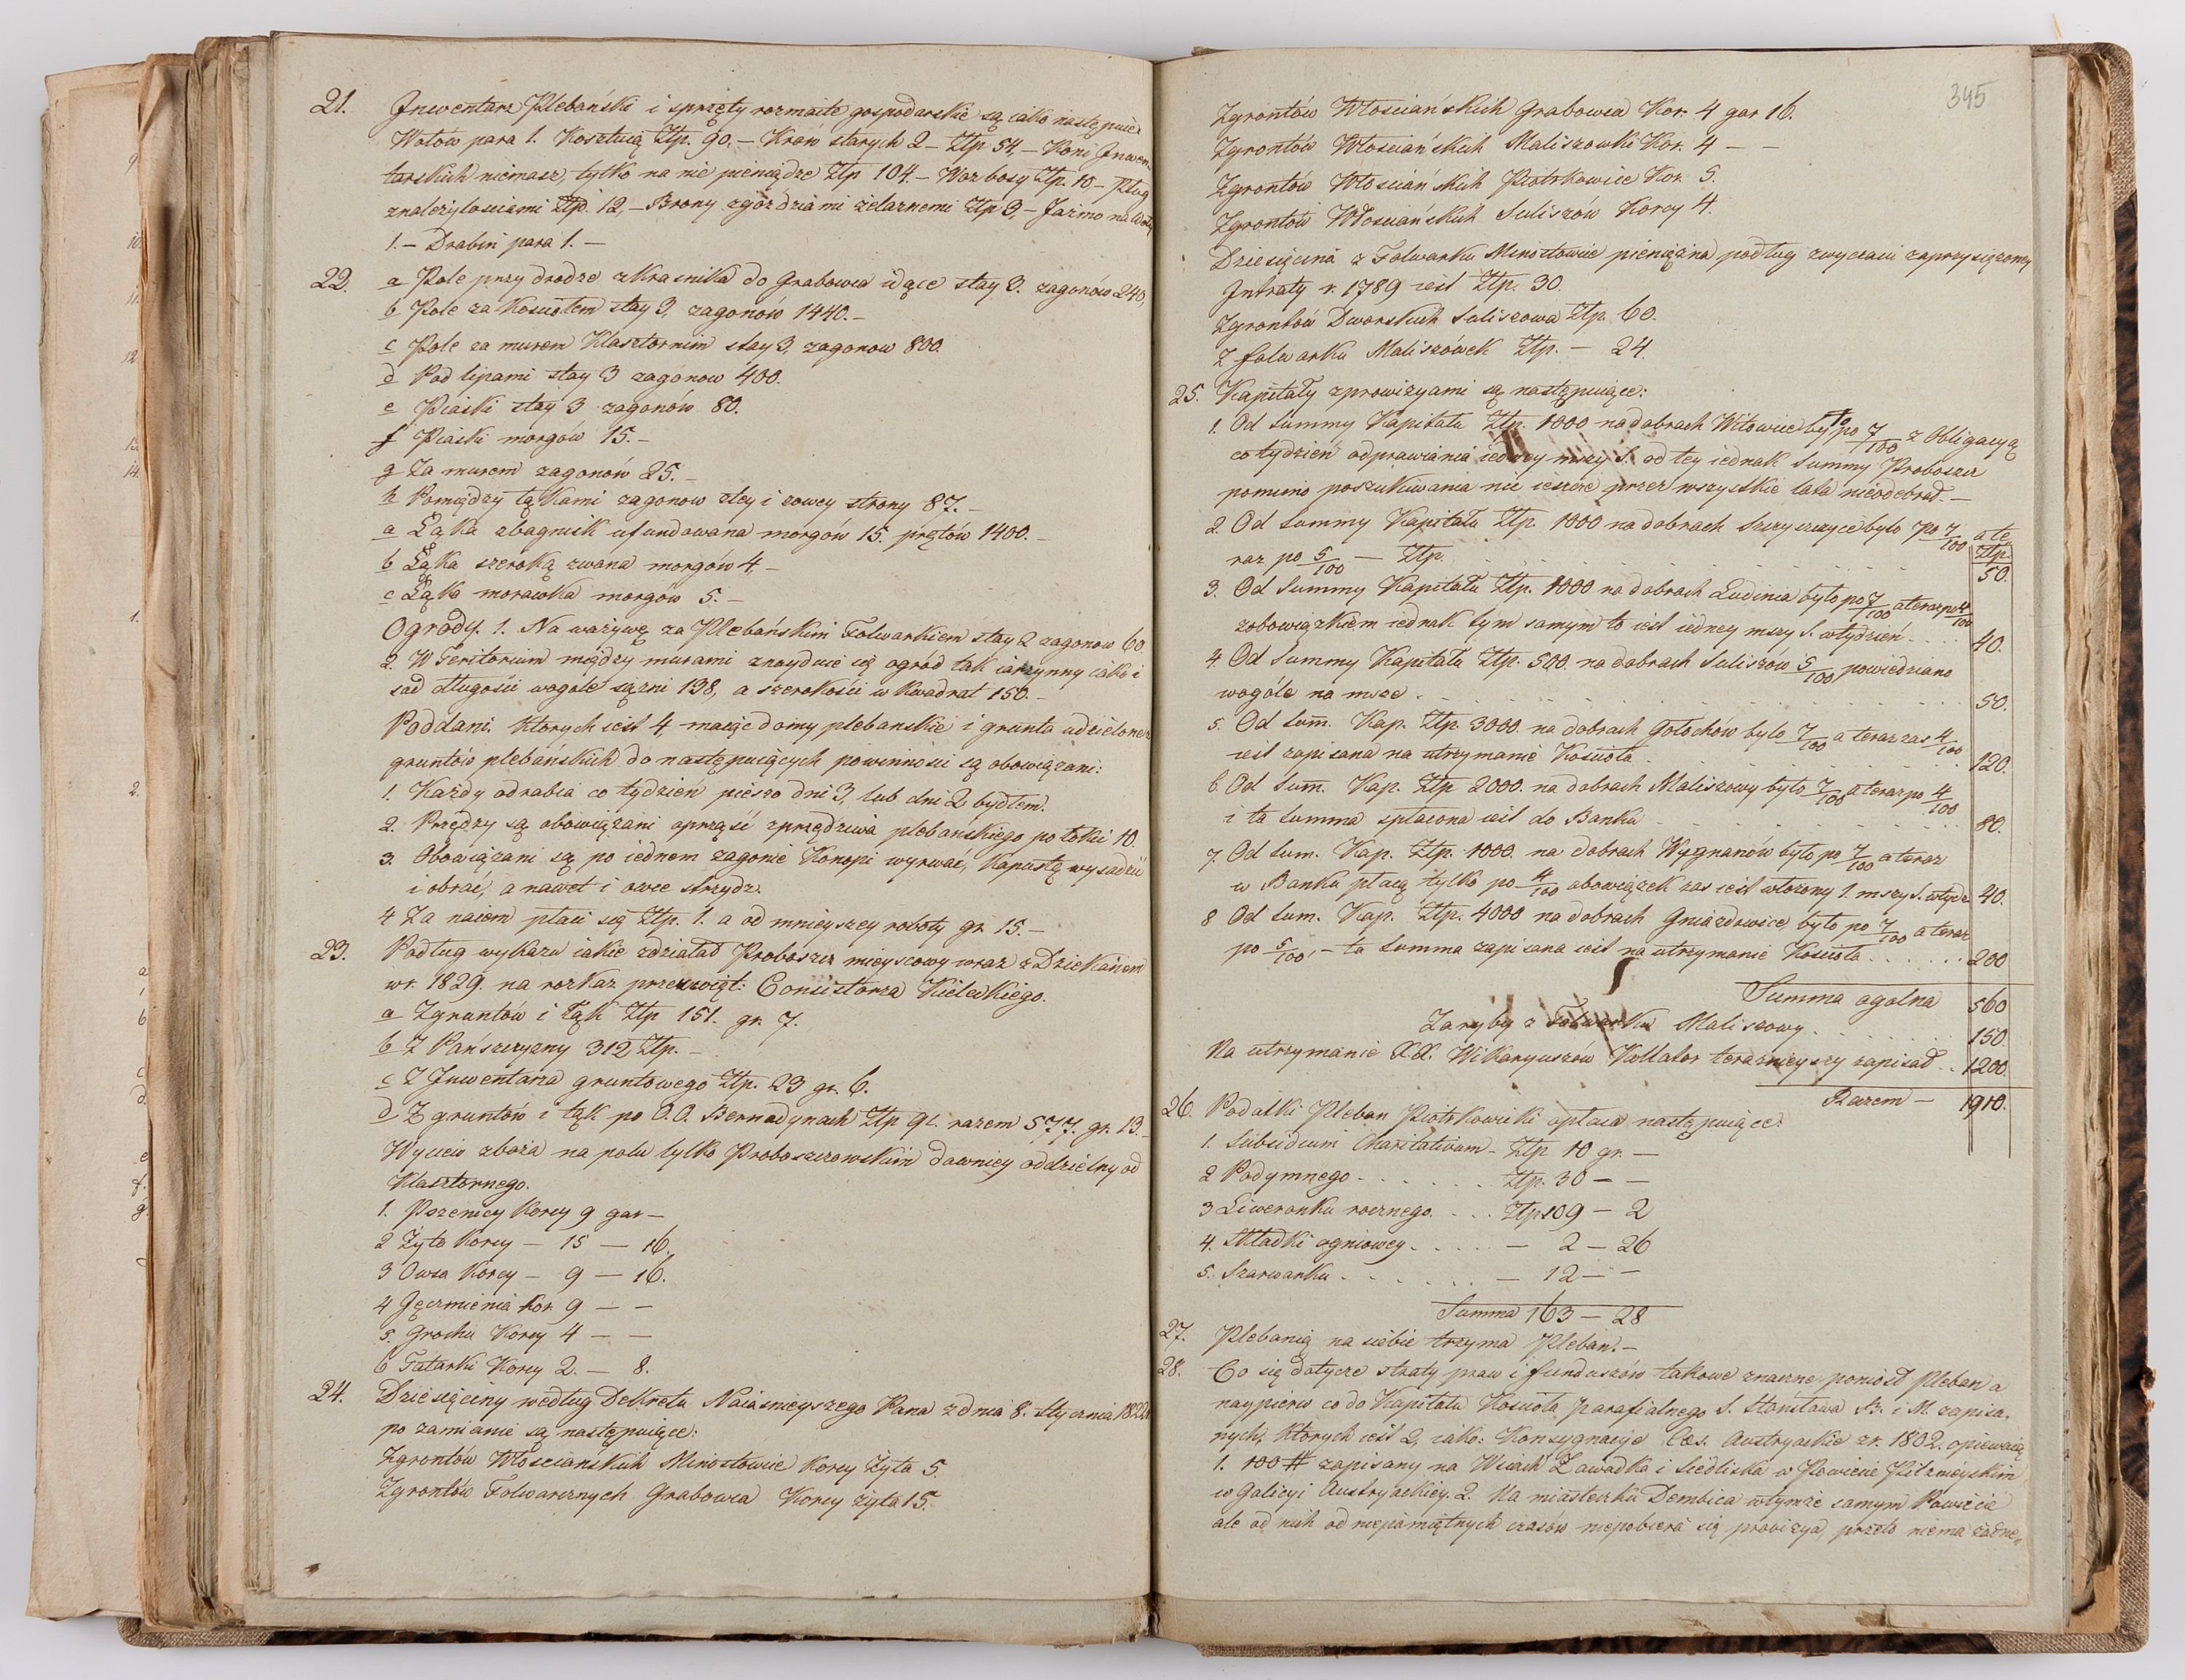 21. Jnwentarz Plebański i sprzęty rozmaite gospodarskie są iako następuie:
Wołów para 1. Kosztuią Ztp. 90. – Krów starych 2 – Ztp 54, – Koni Jnwen-
tarskich niemasz, tylko na nie pieniądze Ztp 104. – Woz bosy Ztp. 10 – Pług
znależytościami Ztp. 12, – Brony zgóździami żelaznemi Ztp 3, – Jażmo na Woły
1. – Drabin para 1. –
22. a Pole przy drodze z Krasnika do Grabowca idące stay 3. zagonów 240,
b Pole za Kościołem stay 3, zagonów 1440. –
c Pole za murem Klasztornim stay 3, zagonow 800.
d Pod lipami stay 3 zagonow 400.
e Piaski stay 3 zagonów 80.
f Piaski morgów 15. –
g Za murem zagonów 25. –
h Pomiędzy łąkami zagonow stey i zowey strony 87. –
a Łąka zbagnisk ufundowana morgów 15. prętów 1400. –
b Łąka szeroką zwana morgów 4, –
c Łąka morawka morgów 5. –
Ogrody. 1. Na ważywę za Plebańskim Folwarkiem stay 2 zagonow 60.
2. W Teritorium między murami znayduie się ogród tak iarzynny iako i
sad długości wogóle sążni 138, a szerokości w Kwadrat 150. –
Poddani. Których iest 4, maiąc domy plebanskie i grunta udzielone z
gruntów plebańskich do następuiących powinności są obowiązani:
1. Każdy odrabia co tydzien pieszo dni 3, lub dni 2 bydłem.
2. Przędzy są obowiązani oprząść zprzędziwa plebańskiego po łokci 10.
3. Obowiązani są po iednem zagonie Konopi wyrwać, Kapustę wysadzić
i obrać, a nawet i owce strzydz.
4 Za naiem płaci się Ztp. 1. a od mnieyszey roboty gr. 15. –
23. Podług wykazu iakie zdziałał Proboszcz mieyscowy wraz z Dziekanem
w r. 1829. na rozkaz przeswięt: Consistorza Kieleckiego.
a Z gruntów i Łąk Ztp 151. gr. 7.
b Z Pańszczyzny 312 Ztp. –
c Z Jnwentarza gruntowego Ztp. 23 gr. 6.
d Z gruntów i łąk po O.O. Bernadynach Ztp 91. razem 577. gr. 13. –
Wysiew zboża na polu tylko Proboszczowskim dawniey oddzielny od
Klasztornego.
1. Pszenicy Korcy 9 gar –
2 Żyto Korcy – 15 – 16.
3 Owsa Korcy – 9 – 16.
4 Jęczmienia Kor. 9 – –
5. Grochu Korcy 4 – –
6 Tatarki Korcy 2. – 8.
24. Dziesięciny według Dekretu Naiasnieyszego Pana z dnia 8. Stycznia
po zamianie są następuiące:
Zgrontów Włosciańskich Minostowice Korcy Żyta 5.
Zgrontów Folwarcznych Grabowca Korcy żyta 15.
345
Zgrontów Włosciańskich Grabowca Kor. 4 gar 16.
Zgrontów Włosciańskich Maliszowki Kor. 4 – –
Zgrontów Włosciańskich Piotrkowice Kor. 5.
Zgrontów Włosciańskich Suliszów Korcy 4.
Dziesięcina z Folwarku Minostowic pieniężna podług zwyczaiu zaprzysiężoney
Jntraty r. 1789 iest Ztp. 30.
Zgrontów Dworskich Suliszowa Ztp. 60.
Z folwarku Maliszówek Ztp. – 24.
25. Kapitały zprowizyami są następuiące:
1. Od Summy Kapitału Ztp. 1000 na dobrach Witowice było po 7/100 z Obligacyą
co tydzień odprawiania iedney mszy S. od tey iednak Summy Proboszcz
pomimo poszukiwania nic ieszcze przez wszystkie lata nieodebrał. –
2. Od Summy Kapitału Ztp. 1000 na dobrach Szczyczyce było po 7/100 a te-
raz po 5/100 – Ztp. . . . . . Ztp. 50.
3. Od Summy Kapitału Ztp. 1000 na dobrach Ludinia było po 7/100 a teraz po 4/100
zobowiązkiem iednak tym samym to iest iedney mszy S. wtydzień . . . 40.
4. Od Summy Kapitału Ztp. 500. na dobrach Suliszów 5/100 powiedziano
wogóle na msze . . . . . 50.
5. Od Sum. Kap. Ztp. 3000. na dobrach Gołochów było 7/100 a teraz zas 4/100
iest zapisana na utrzymanie Kościoła . . . . 120.
6. Od Sum. Kap. Ztp 2000. na dobrach Maliszowy było 7/100 a teraz po 4/100
i ta Summa spłacona iest do Banku . . . . 80.
7. Od Sum. Kap. Ztp. 1000. na dobrach Wygnanów było po 7/100 a teraz
w Banku płacą tylko po 4/100 obowiązek zas iest włożony 1. mszy S. wtydz. 40.
8 Od Sum. Kap. Ztp. 4000 na dobrach Gniazdowice było po 7/100 a teraz
po 5/100, – ta Summa zapisana iest na utrzymanie Kościoła . . . . . 200
Summa ogolna 560
Za ryby z Folwarku Maliszowy . . . 150.
Na utrzymanie X.X. Wikaryuszów Kollator terazneyszy zapisał . . 1200.
Razem – 1910.
26. Podatki Pleban Piotrkowicki opłaca następuiące:
1. Subsidium Charitativum – Ztp 10 gr. –
2 Podymnego . . . . . . Ztp. 30 – –
3 Liweranku rocznego . . . Ztp 109 – 2
4. Składki ogniowey . . . . – 2 – 26
5. Szarwarku . . . . . . – 12 – –
Summa 163 – 28
27. Plebanią na siebie trzyma Pleban. –
28. Co się dotycze straty praw i funduszów takowe znaczne poniosł Pleban a
naypierw co do Kapitału Kościoła parafialnego S. Stanisława B. i M. zapisa-
nych, których iest 2, iako: Konsygnacye Ces. Austryackie z r. 1802. opiewaią
1. 100 # zapisany na Wsiach Zawadka i Siedliska w Powiecie Pilzneyskim
w Galicyi Austryackiey. 2. Na miasteczku Dembica wtymże samym Powiecie
ale od nich od niepamiętnych czasów niepobiera się prowizya, przeto niema żadne-